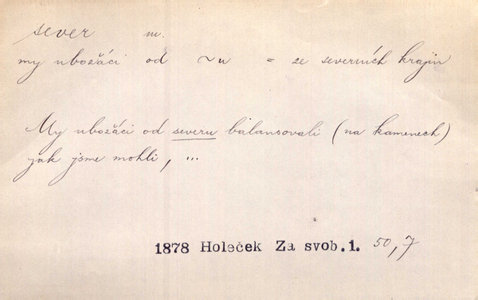 sever m.
my ubožáci od ~u = ze severních krajin
My ubožáci od severu balansovali (na kamenech)
jak jsme mohli, ...
1878 Holeček Za svob.1. 50,7